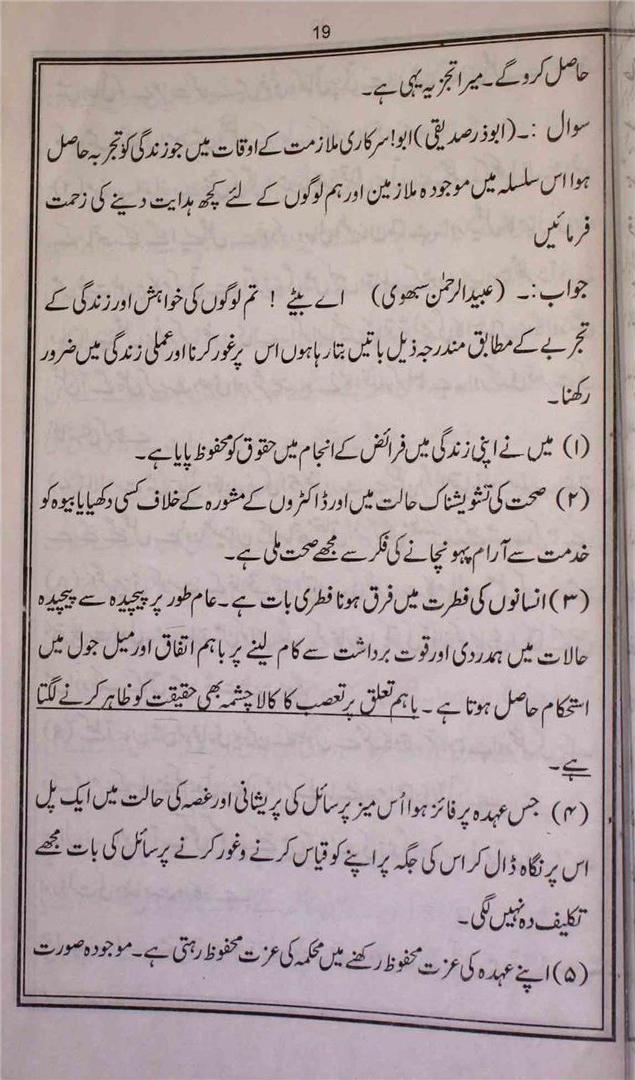 19
حاصل کرو گے۔ میرا تجزیہ یہی ہے۔
سوال :۔ (ابوذر صدیقی) ابو! سرکاری ملازمت کے اوقات میں جو زندگی کو تجربہ حاصل
ہوا اس سلسلہ میں موجودہ ملازمین اور ہم لوگوں کے لئے کچھ ہدایت دینے کی زحمت
فرمائیں
جواب :۔ (عبیدالرحمٰن سبھوی) اے بیٹے ! تم لوگوں کی خواہش اور زندگی کے
تجربے کے مطابق مندرجہ ذیل باتیں بتا رہا ہوں اس پر غور کرنا اور عملی زندگی میں ضرور
رکھنا۔
(۱) میں نے اپنی زندگی میں فرائض کے انجام میں حقوق کو محفوظ پایا ہے۔
(۲) صحت کی تشویشناک حالت میں اور ڈاکٹروں کے مشورہ کے خلاف کسی دکھیا یا بیوہ کو
خدمت سے آرام پہونچانے کی فکر سے مجھے صحت ملی ہے۔
(۳) انسانوں کی فطرت میں فرق ہونا فطری بات ہے۔ عام طور پر پیچیدہ سے پیچیدہ
حالات میں ہمدردی اور قوت برداشت سے کام لینے پر باہم اتفاق اور میل جول میں
استحکام حاصل ہوتا ہے۔ باہم تعلق پر تعصب کا کالا چشمہ بھی حقیقت کو ظاہر کرنے لگتا
ہے۔
(۴) جس عہدہ پر فائز ہوا اُس میز پر سائل کی پریشانی اور غصہ کی حالت میں ایک پل
اس پر نگاہ ڈال کر اس کی جگہ پر اپنے کو قیاس کرنے و غور کرنے پر سائل کی بات مجھے
تکلیف دہ نہیں لگی۔
(۵) اپنے عہدہ کی عزت محفوظ رکھنے میں محکمہ کی عزت محفوظ رہتی ہے۔ موجودہ صورت